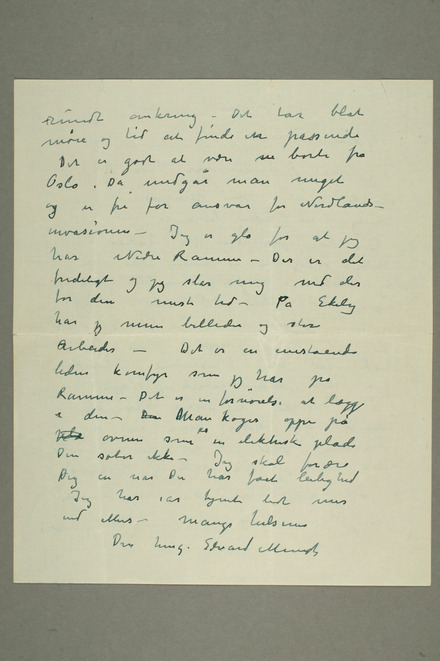 rundt omkring – Det har blot
møie og tid at finde et passende
Det er godt at være borte fra
Oslo. Da undgår man meget
og er fri for ansvar for Nordlands-
invasionen – Jeg er gla for at jeg
har Nedre Ramme – Der er det
fredeligt og jeg slår mig ned der
for den meste tid – På Ekely
har jeg mine billeder og store
Arbeider – Det er en enestaaende
liden komfyr som jeg har på
Ramme – Det er en fornøielse at lægge
i den – Man koger oppe på
ovnen som på en elektrisk plade
Den soter ikke – Jeg skal forære
Dig en når Du har fået leilighed
Jeg har iår tjent lidt mer
end ellers – mange hilsener
Din heng. Edvard Munch